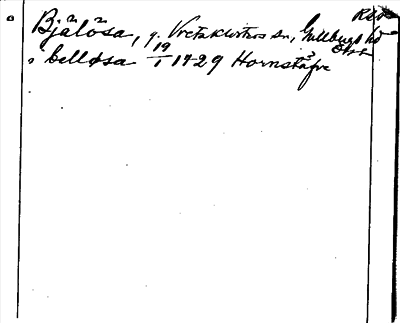 Bjälösa, g. Vretaklosters sn, Gullbergs hd
i bellösa 19/1 1729 Hornstäfve